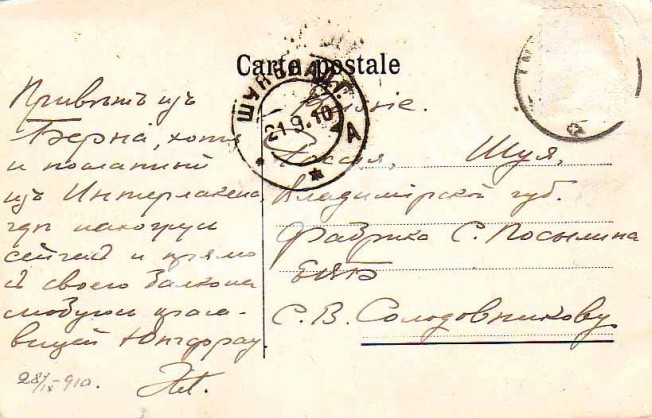 Carte postale
ШУЯ ВЛАД. Г.
21.9.10
А
Привѣтъ изъ
Берна, хотя
и посланный
изъ Интерлакена,
гдѣ нахожусь
сейчас и прямо
с своего балкона
любуюсь краса-
вицей Юнгфрау.
28/IX-910.
Russie.
Россия, Шуя,
Владимірской губ.
Фабрика С. Посылина
ЕВБ
С. В. Солодовникову